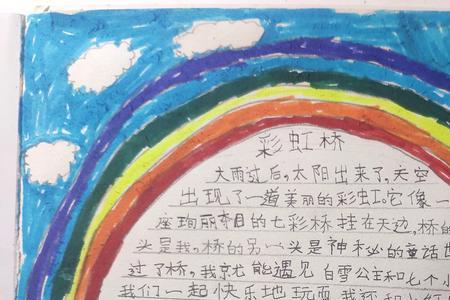 彩虹桥
大雨过后，太阳出来了，天空
出现了一道美丽的彩虹。它像一
座绚丽夺目的七彩桥挂在天边，桥的
头是我，桥的另一头是神秘的童话世
过了桥，我就能遇见白雪公主和七个小
我们一起快乐地玩